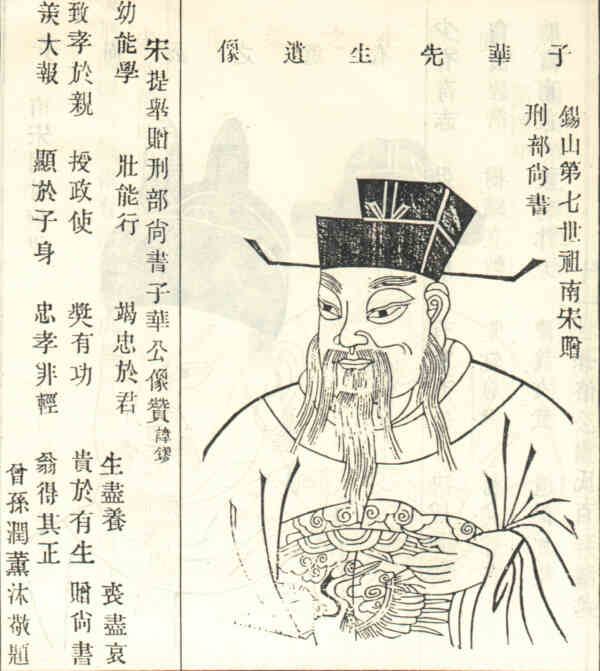 子華先生遺像
錫山第七世祖南宋贈
刑部尚書
宋提舉贈刑部尚書子華公像贊 諱鏐
幼能學 壯能行 竭忠於君 生盡養 喪盡哀
致孝於親 授政使 獎有功 貴於有生 贈尚書
羨大報 顯於子身 忠孝非輕 翁得其正
曾孫潤薰沐敬題